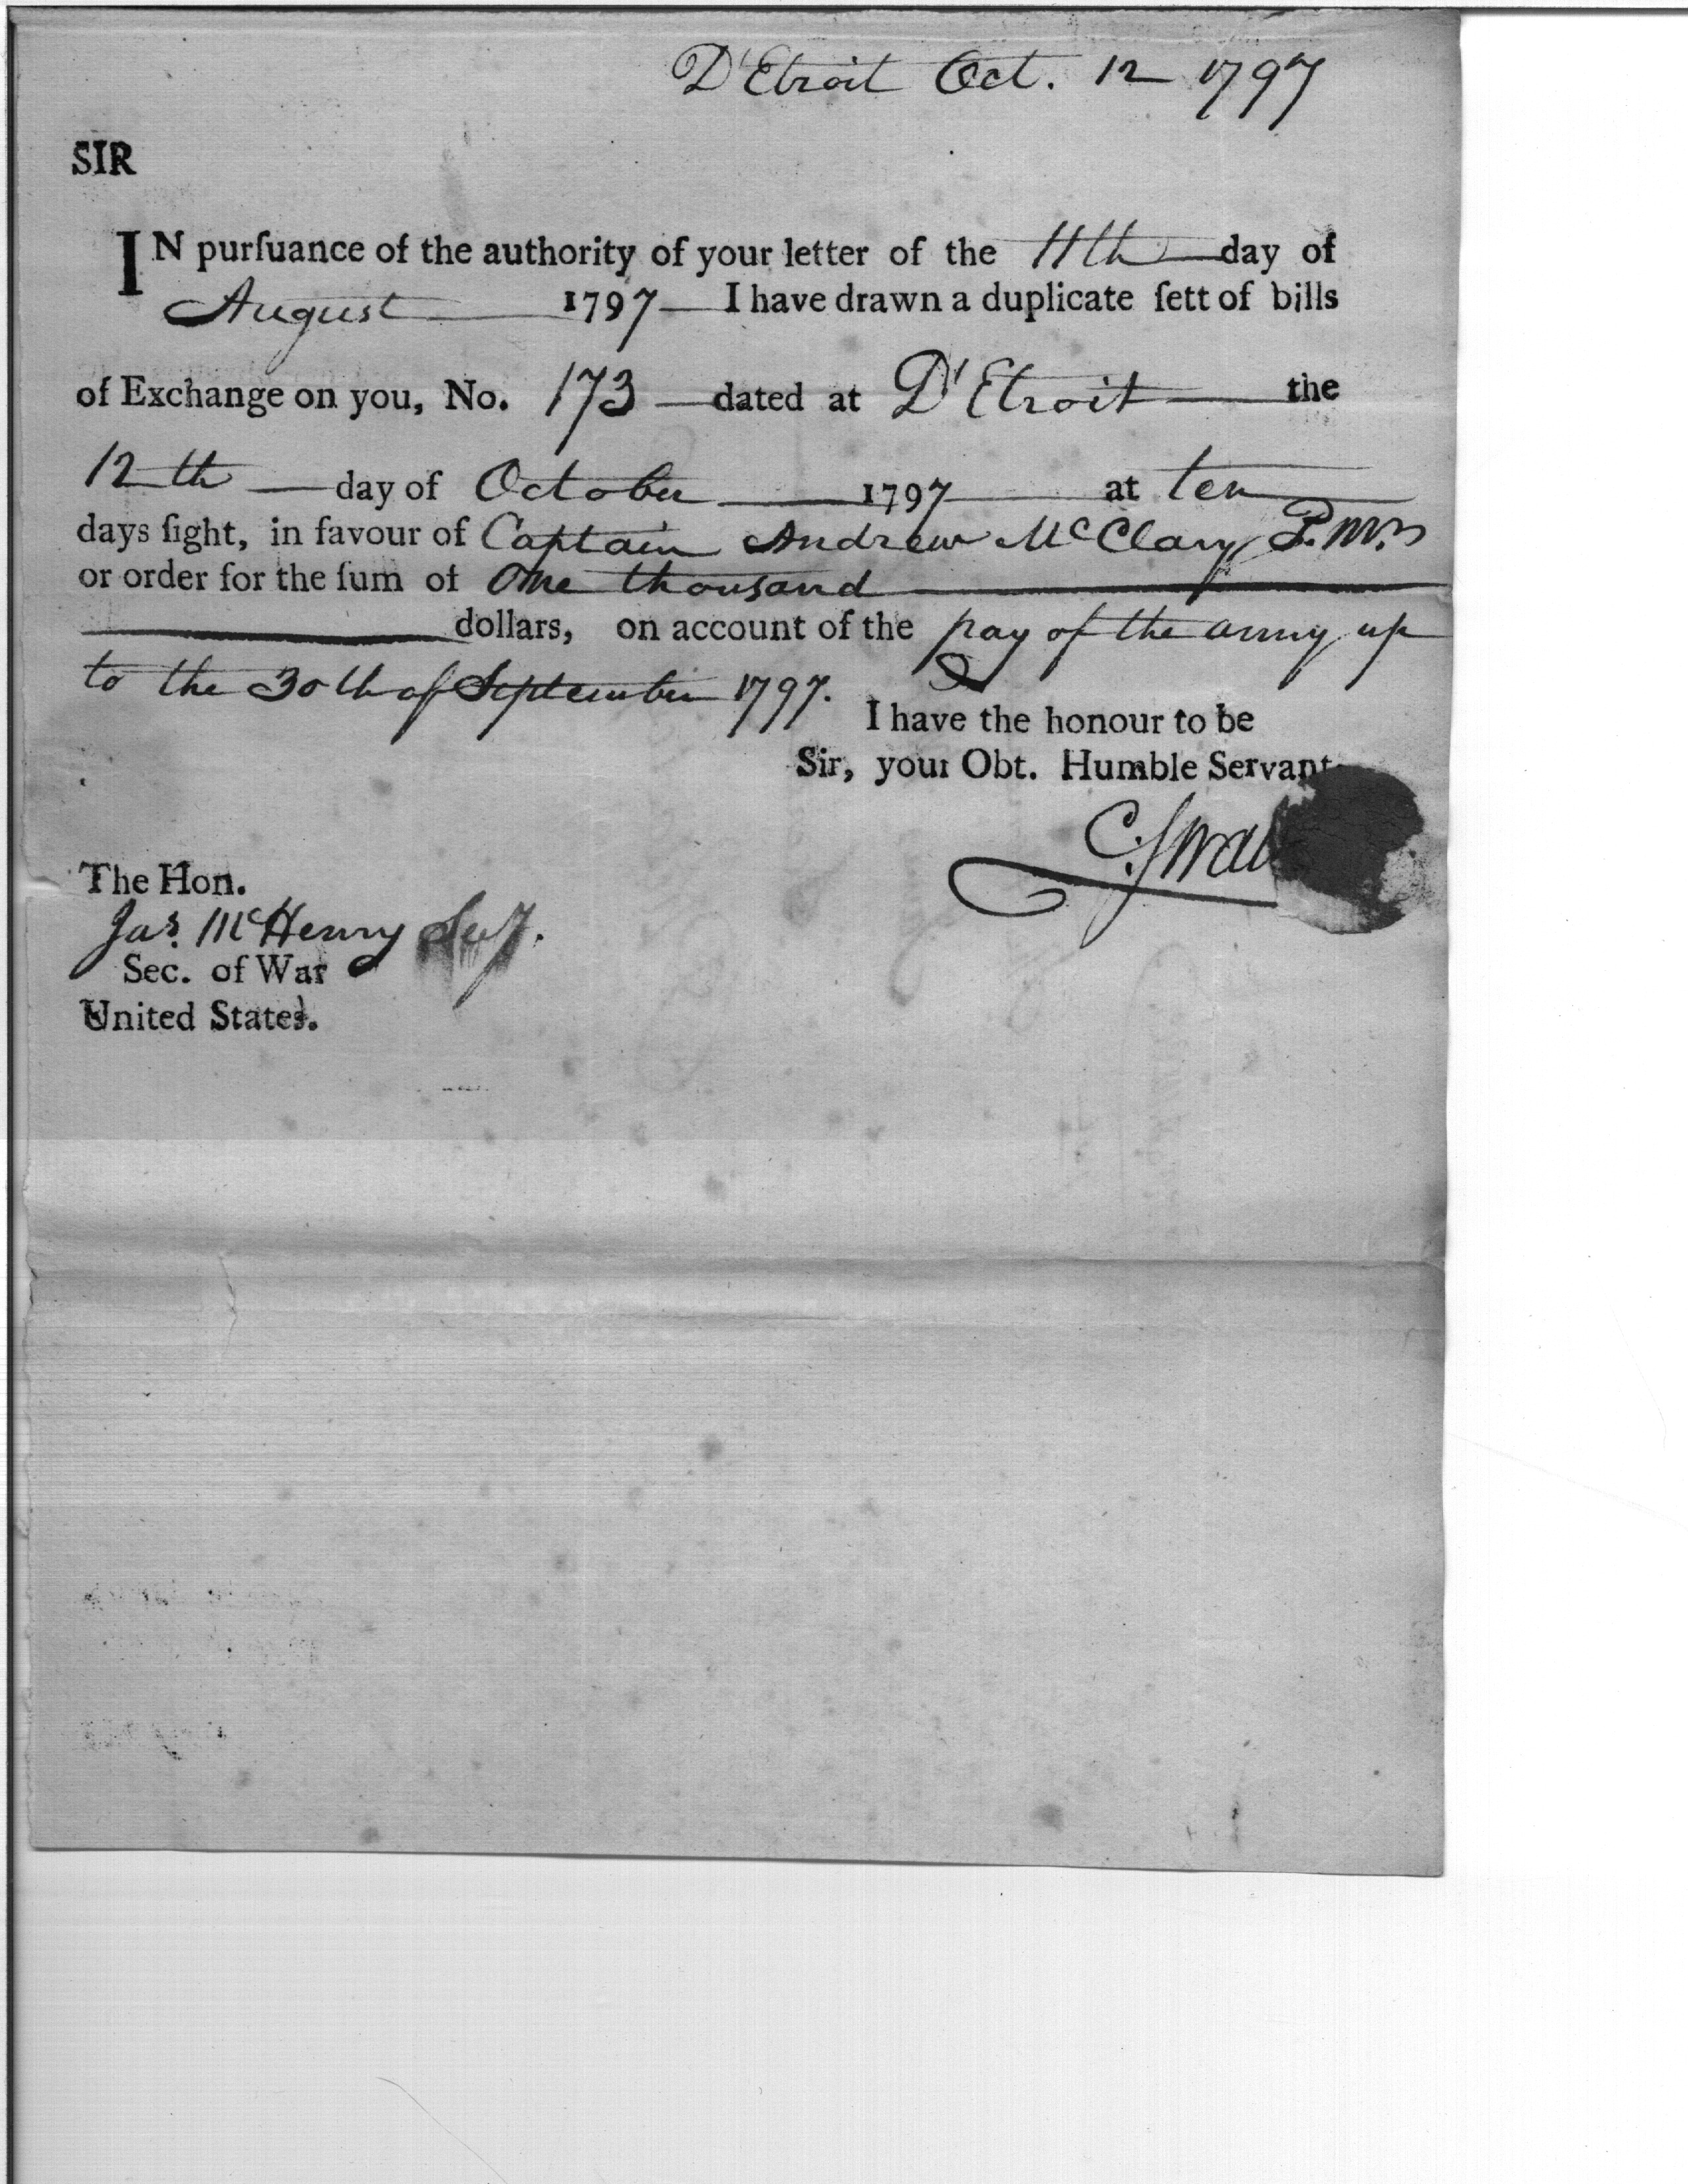 D'Etroit Oct. 12 1797
SIR
IN purſuance of the authority of your letter of the 11th day of
August 1797 I have drawn a duplicate ſett of bills
of Exchange on you, No. 173 dated at D'Etroit the
12th day of October 1797 at ten
days ſight, in favour of Captain Andrew McClary P.M.
or order for the ſum of One thousand
dollars, on account of the pay of the army up
to the 30th of September 1797.
I have the honour to be
Sir, your Obt. Humble Servant
C. Swa
The Hon.
Jas. McHenry
Sec. of War
United States.